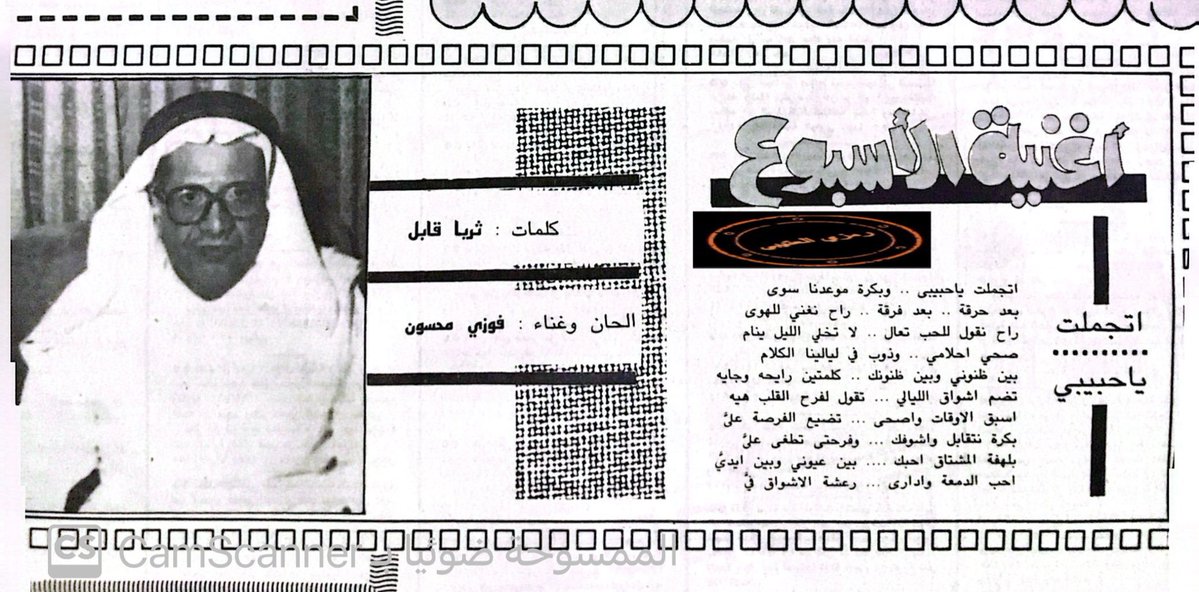 أغنية الأسبوع
اتجملت
ياحبيبي
اتجملت ياحبيبى .. وبكرة موعدنا سوى
بعد حرقة .. بعد فرقة .. راح نغني للهوى
راح نقول للحب تعال .. لا تخلي الليل ينام
صحي احلامي .. وذوب في ليالينا الكلام
بين ظنوني وبين ظنونك .. كلمتين رايحه وجايه
تضم اشواق الليالي ... تقول لفرح القلب هيه
اسبق الاوقات واصحى ... تضيع الفرصة علىَّ
بكرة نتقابل واشوفك ... وفرحتى تطفى علىَّ
بلهفة المشتاق احبك .... بين عيوني وبين ايديَّ
احب الدمعة وادارى ... رعشة الاشواق فيَّ
كلمات : ثريا قابل
الحان وغناء : فوزي محسون
CS CamScanner الممسوحة ضوئيا بـ